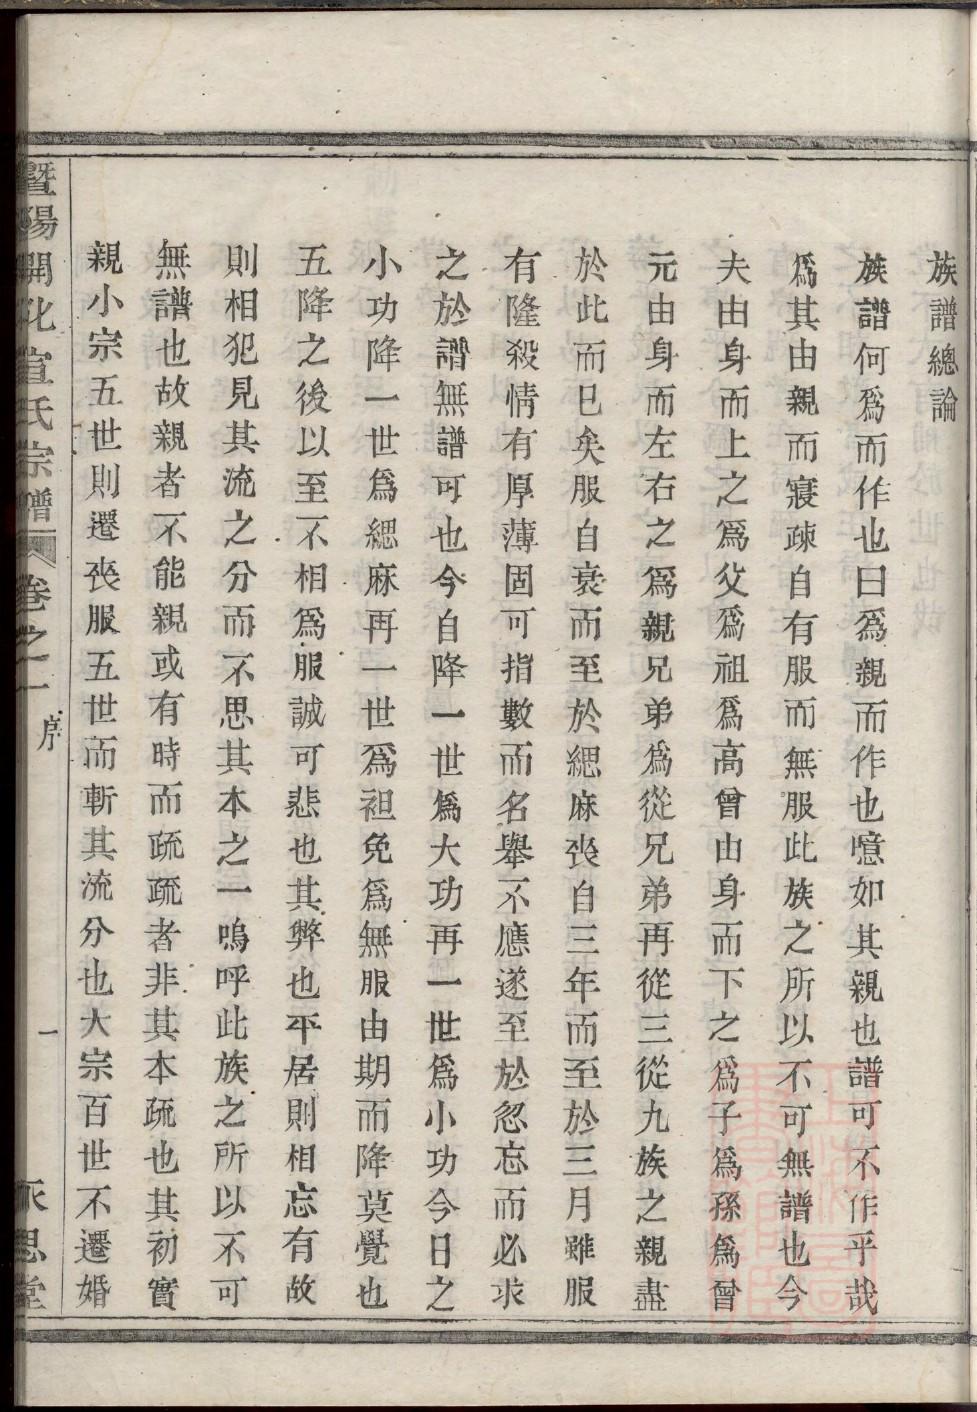 族譜總論
族譜何爲而作也曰爲親而作也噫如其親也譜可不作乎哉
爲其由親而寢疎自有服而無服此族之所以不可無譜也今
夫由身而上之爲父爲祖爲高曾由身而下之爲子爲孫爲曾
元由身而左右之爲親兄弟爲從兄弟再從三從九族之親盡
於此而已矣服自衰而至於緦麻喪自三年而至於三月雖服
有隆殺情有厚薄固可指數而名舉不應遂至於忽忘而必求
之於譜無譜可也今自降一世爲大功再一世爲小功今日之
小功降一世爲緦麻再一世爲袒免爲無服由期而降莫覺也
五降之後以至不相爲服誠可悲也其弊也平居則相忘有故
則相犯見其流之分而不思其本之一嗚呼此族之所以不可
無譜也故親者不能親或有時而疏疏者非其本疏也其初實
親小宗五世則遷喪服五世而斬其流分也大宗百世不遷婚
暨陽開化宣氏宗譜 卷之一 序 一 永思堂